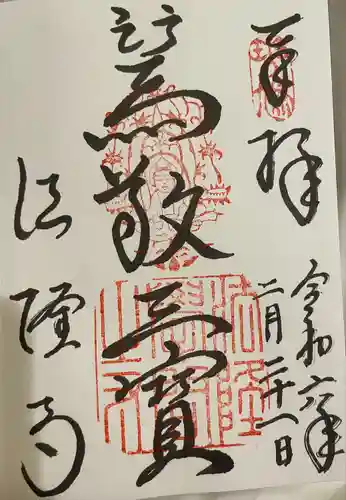 奉拝
令和六年
二月二十一日
篤敬三寳
法隆寺